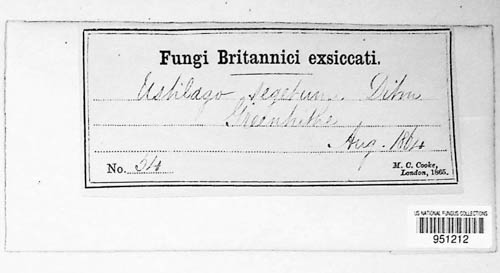 Fungi Britannici exsiccati.
Ustilago segetum. Ditm
Greenhithe
Aug. 1864
No. 54
M. C. Cooke,
London, 1865.
US NATIONAL FUNGUS COLLECTIONS
951212